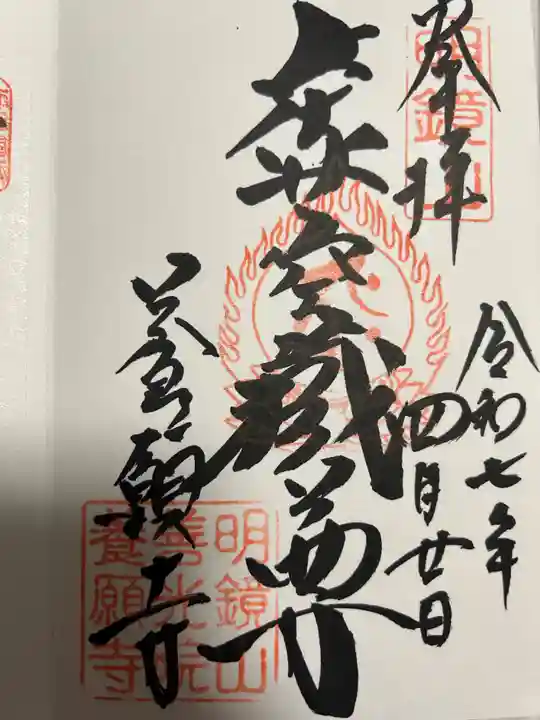 奉拝
明鏡山
令和七年
四月廿日
虚空蔵尊
養願寺
明鏡山
善光院
養願寺